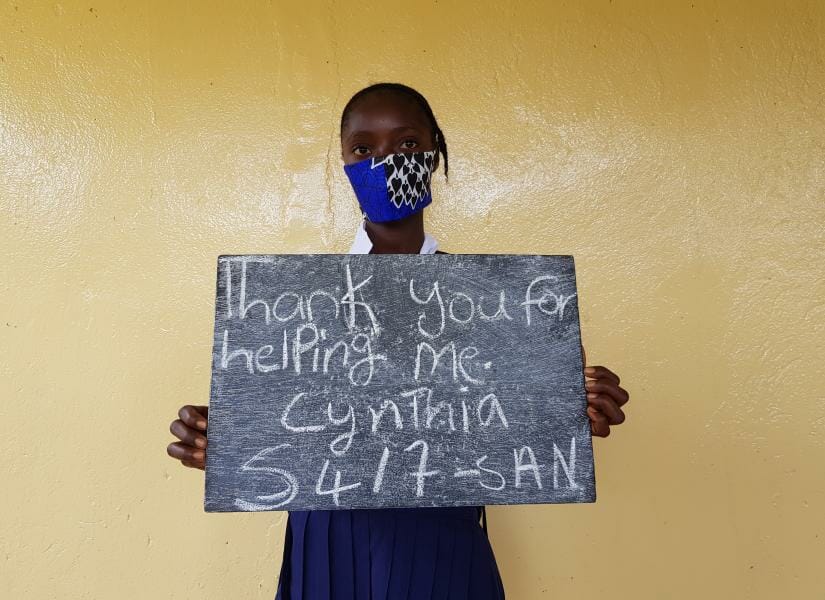 Thank you for
helping me.
Cynthia
5417-SAN